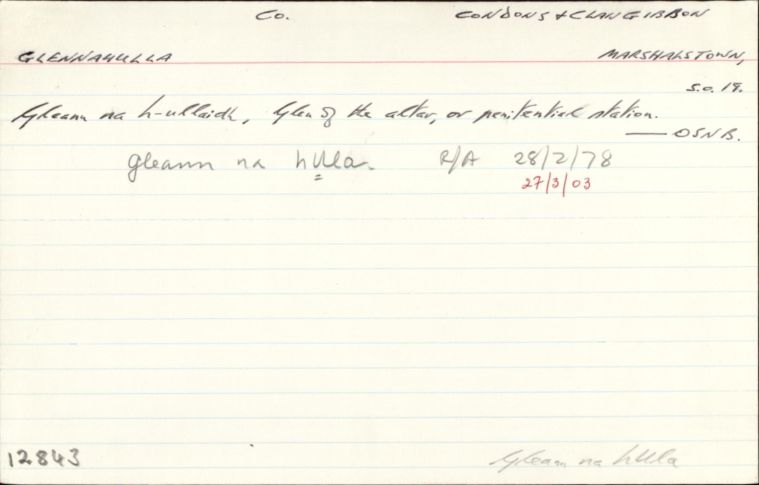 Co. CONDONS & CLANGIBBON
GLENNAHULLA MARSHALSTOWN,
S.O. 19.
Gleann na h-ullaidh, Glen of the altar, or penitential station.
— OSNB.
Gleann na hUla R/A 28/2/78
27/3/03
12843 Gleann na hUla